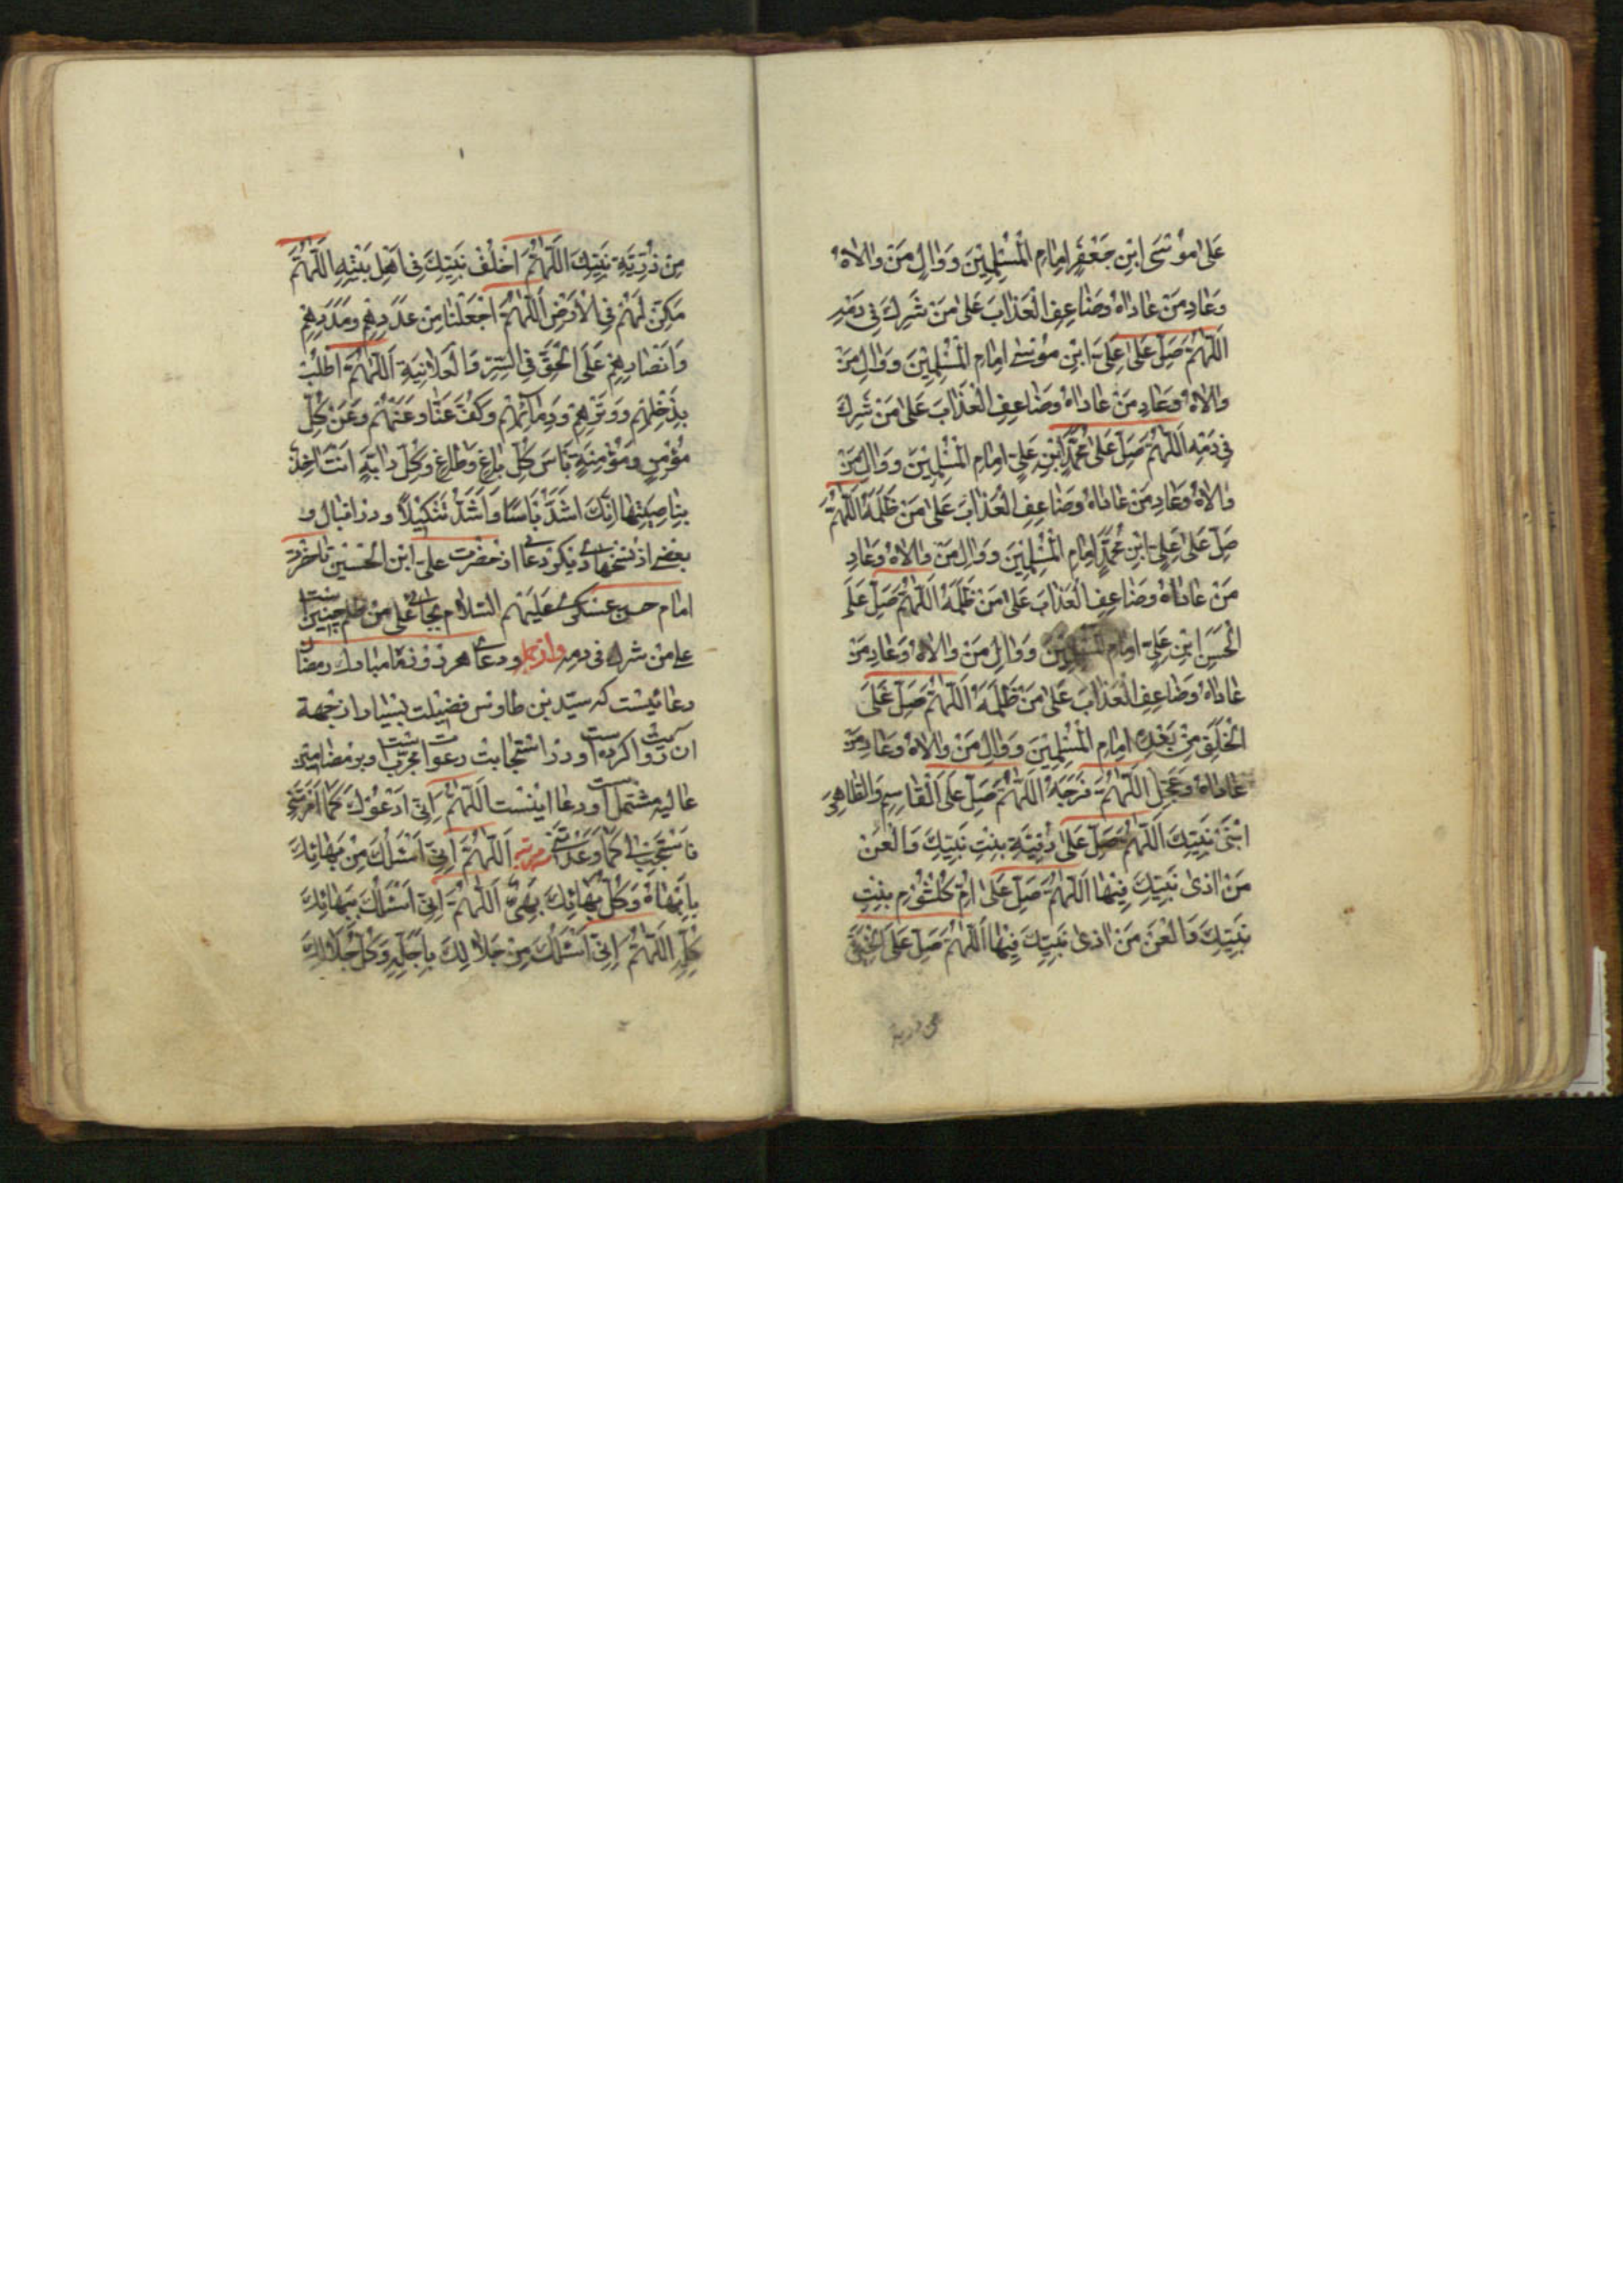 عَلىٰ مُوسَى ابْنِ جَعْفَرٍ اِمٰامِ الْمُسْلِمِيْنَ وَ وٰالِ مَنْ وٰالاٰهُ
وَ عٰادِ مَنْ عٰادٰاهُ وَ ضٰاعِفِ الْعَذٰابَ عَلىٰ مَنْ شَرِكَ فِى دَمِهِ
اَللّٰهُمَّ صَلِّ عَلىٰ عَلِىِّ ابْنِ مُوْسٰى اِمٰامِ الْمُسْلِمِيْنَ وَ وٰالِ مَنْ
وٰالاٰهُ وَ عٰادِ مَنْ عٰادٰاهُ وَ ضٰاعِفِ الْعَذٰابَ عَلىٰ مَنْ شَرِكَ
فِى دَمِهِ اَللّٰهُمَّ صَلِّ عَلىٰ مُحَمَّدِ ابْنِ عَلِىٍّ اِمٰامِ الْمُسْلِمِيْنَ وَ وٰالِ مَنْ
وٰالاٰهُ وَ عٰادِ مَنْ عٰادٰاهُ وَ ضٰاعِفِ الْعَذٰابَ عَلىٰ مَنْ ظَلَمَهُ اَللّٰهُمَّ
صَلِّ عَلىٰ عَلِىِّ ابْنِ مُحَمَّدٍ اِمٰامِ الْمُسْلِمِيْنَ وَ وٰالِ مَنْ وٰالاٰهُ وَ عٰادِ
مَنْ عٰادٰاهُ وَ ضٰاعِفِ الْعَذٰابَ عَلىٰ مَنْ ظَلَمَهُ اَللّٰهُمَّ صَلِّ عَلَى
الْحَسَنِ ابْنِ عَلِىٍّ اِمٰامِ الْمُسْلِمِيْنَ وَ وٰالِ مَنْ وٰالاٰهُ وَ عٰادِ مَنْ
عٰادٰاهُ وَ ضٰاعِفِ الْعَذٰابَ عَلىٰ مَنْ ظَلَمَهُ اَللّٰهُمَّ صَلِّ عَلَى
الْخَلَفِ مِنْ بَعْدِهِ اِمٰامِ الْمُسْلِمِيْنَ وَ وٰالِ مَنْ وٰالاٰهُ وَ عٰادِ مَنْ
عٰادٰاهُ وَ عَجِّلِ اللّٰهُمَّ فَرَجَهُ اَللّٰهُمَّ صَلِّ عَلَى الْقٰاسِمِ وَ الطّٰاهِرِ
ابْنَىْ نَبِيِّكَ اَللّٰهُمَّ صَلِّ عَلىٰ رُقَيَّةَ بِنْتِ نَبِيِّكَ وَ الْعَنْ
مَنْ اٰذىٰ نَبِيَّكَ فِيْهٰا اَللّٰهُمَّ صَلِّ عَلىٰ اُمِّ كُلْثُوْمٍ بِنْتِ
نَبِيِّكَ وَ الْعَنْ مَنْ اٰذىٰ نَبِيَّكَ فِيْهٰا اَللّٰهُمَّ صَلِّ عَلَى الْخِيَرَةِ
من ذرية
مِنْ ذُرِّيَّةِ نَبِيِّكَ اَللّٰهُمَّ اخْلُفْ نَبِيَّكَ فِى اَهْلِ بَيْتِهِ اَللّٰهُمَّ
مَكِّنْ لَهُمْ فِى الْاَرْضِ اَللّٰهُمَّ اجْعَلْنٰا مِنْ عَدَدِهِمْ وَ مَدَدِهِمْ
وَ اَنْصٰارِهِمْ عَلَى الْحَقِّ فِى السِّرِّ وَ الْعَلاٰنِيَةِ اَللّٰهُمَّ اطْلُبْ
بِذَحْلِهِمْ وَ وَتْرِهِمْ وَ دِمٰائِهِمْ وَ كُفَّ عَنّٰا وَ عَنْهُمْ وَ عَنْ كُلِّ
مُؤْمِنٍ وَ مُؤْمِنَةٍ بَاْسَ كُلِّ بٰاغٍ وَ طٰاغٍ وَ كُلِّ دٰابَّةٍ اَنْتَ اٰخِذٌ
بِنٰاصِيَتِهٰا اِنَّكَ اَشَدُّ بَاْسًا وَ اَشَدُّ تَنْكِيْلاً و در اقبال و
بعضى از نسخهاى ديگر دعاى از حضرت على ابن الحسين تا حضرت
امام حسن عسكرى عليهم السلام بجاى على من ظلمه چنين است
على من شرك فى دمه واز جمله دعاى هر روزه ماه مبارك رمضان
دعائيست كه سيد بن طاوس فضيلت بسيار از جهة
ان روايت كرده است و در استجابت دعوات مجرب است و بر مضامين
عاليه مشتمل است و دعا اينست اَللّٰهُمَّ اِنِّى اَدْعُوْكَ كَمٰا اَمَرْتَنِى
فَاسْتَجِبْ لِى كَمٰا وَعَدْتَنِى اَللّٰهُمَّ اِنِّى اَسْئَلُكَ مِنْ بَهٰائِكَ
بِاَبْهٰاهُ وَ كُلُّ بَهٰائِكَ بَهِىٌّ اَللّٰهُمَّ اِنِّى اَسْئَلُكَ بِبَهٰائِكَ
كُلِّهِ اَللّٰهُمَّ اِنِّى اَسْئَلُكَ مِنْ جَلاٰلِكَ بِاَجَلِّهِ وَ كُلُّ جَلاٰلِكَ